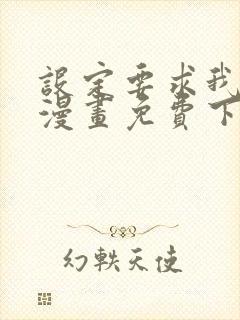 設定要求我
漫畫免費下
幻軼天使